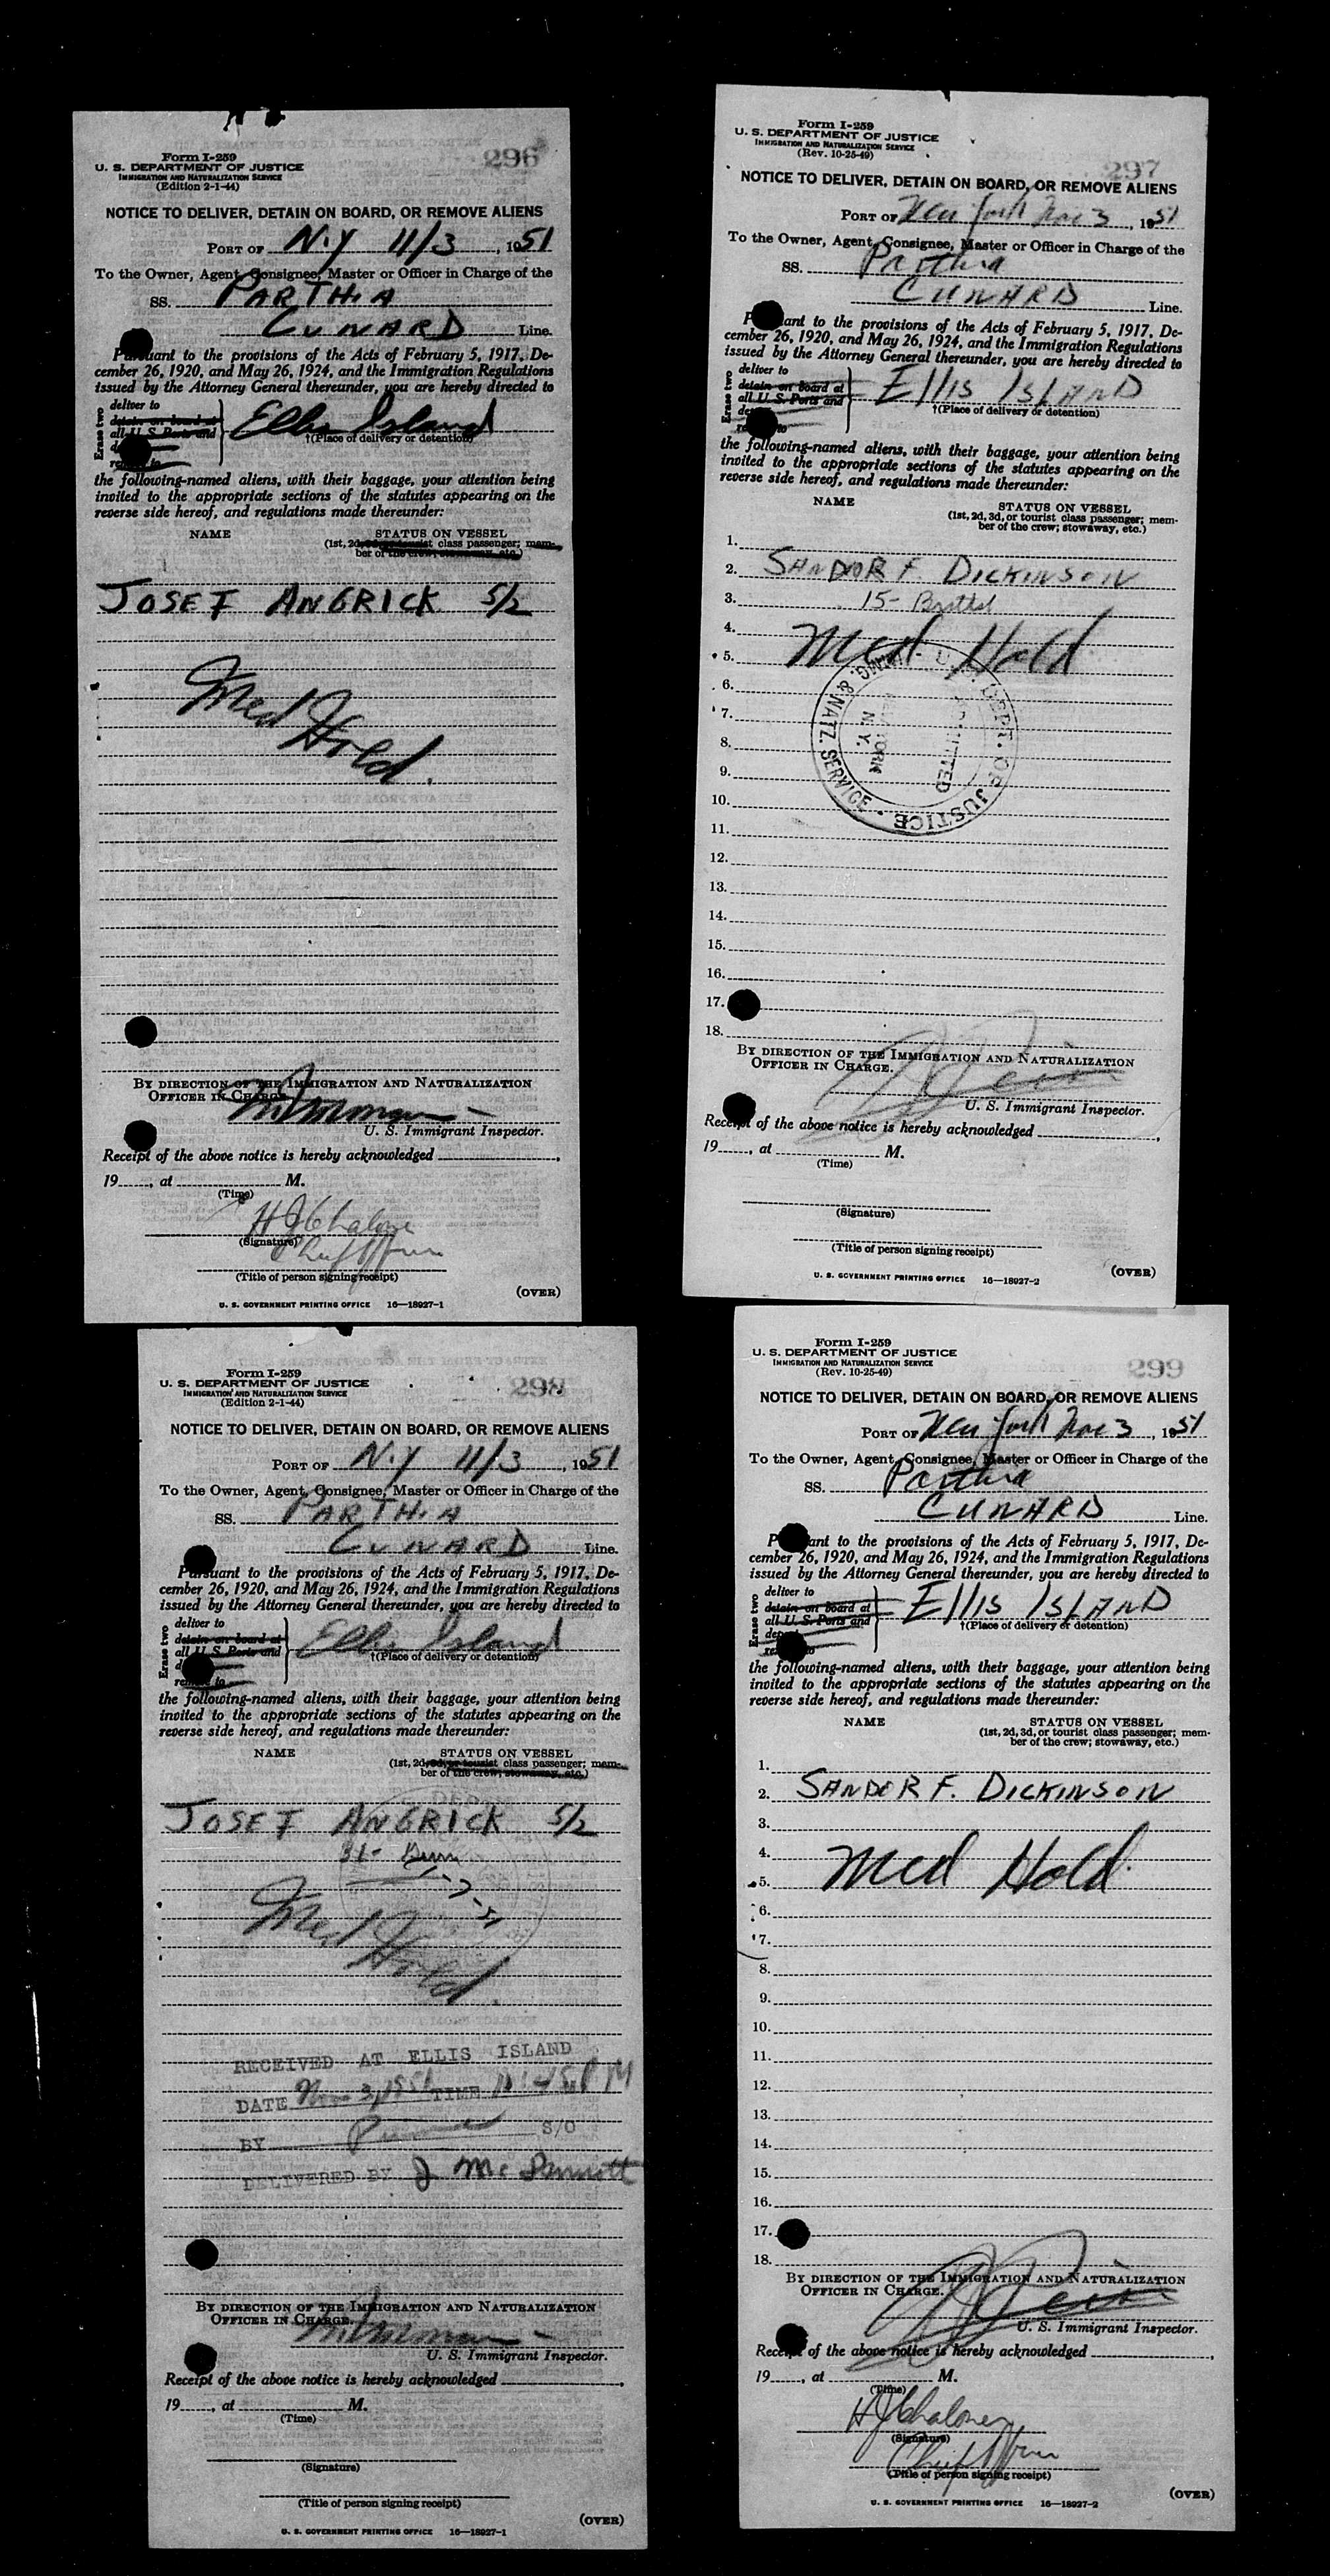 296
Form I-259
U. S. DEPARTMENT OF JUSTICE
IMMIGRATION AND NATURALIZATION SERVICE
(Edition 2-1-44)
NOTICE TO DELIVER, DETAIN ON BOARD, OR REMOVE ALIENS
PORT OF N.Y 11/3, 1951
To the Owner, Agent, Consignee, Master or Officer in Charge of the
SS. PARTHIA
CUNARD Line.
Pursuant to the provisions of the Acts of February 5, 1917, De-
cember 26, 1920, and May 26, 1924, and the Immigration Regulations
issued by the Attorney General thereunder, you are hereby directed to
Erase two
deliver to
detain on board at
all U. S. Ports and
Ellis Island
†(Place of delivery or detention)
the following-named aliens, with their baggage, your attention being
invited to the appropriate sections of the statutes appearing on the
reverse side hereof, and regulations made thereunder:
NAME STATUS ON VESSEL
(1st, 2d, 3d, or tourist class passenger; mem-
ber of the crew; stowaway, etc.)
JOSEF ANGRICK 5/2
Med Hold.
BY DIRECTION OF THE IMMIGRATION AND NATURALIZATION
OFFICER IN CHARGE.
U. S. Immigrant Inspector.
Receipt of the above notice is hereby acknowledged
19, at M.
(Time)
H J Chaloner
(Signature)
Chief Offr
(Title of person signing receipt)
(OVER)
U. S. GOVERNMENT PRINTING OFFICE 16—18927-1
297
Form I-259
U. S. DEPARTMENT OF JUSTICE
IMMIGRATION AND NATURALIZATION SERVICE
(Rev. 10-25-49)
NOTICE TO DELIVER, DETAIN ON BOARD, OR REMOVE ALIENS
PORT OF New York Nov 3, 1951
To the Owner, Agent, Consignee, Master or Officer in Charge of the
SS. Parthia
CUNARD Line.
Pursuant to the provisions of the Acts of February 5, 1917, De-
cember 26, 1920, and May 26, 1924, and the Immigration Regulations
issued by the Attorney General thereunder, you are hereby directed to
Erase two
deliver to
detain on board at
all U. S. Ports and
Ellis ISLAND
†(Place of delivery or detention)
the following-named aliens, with their baggage, your attention being
invited to the appropriate sections of the statutes appearing on the
reverse side hereof, and regulations made thereunder:
NAME STATUS ON VESSEL
(1st, 2d, 3d, or tourist class passenger; mem-
ber of the crew; stowaway, etc.)
1.
2. SANDOR F. DICKINSON
3. 15-
4. Med Hold
5.
6.
7.
8.
9.
10.
11.
12.
13.
14.
15.
16.
17.
18.
U. S. DEPT. OF JUSTICE • IMMIG. & NATZ. SERVICE •
ADMITTED
NEW YORK
N. Y.
BY DIRECTION OF THE IMMIGRATION AND NATURALIZATION
OFFICER IN CHARGE.
U. S. Immigrant Inspector.
Receipt of the above notice is hereby acknowledged
19, at M.
(Time)
(Signature)
(Title of person signing receipt)
(OVER)
U. S. GOVERNMENT PRINTING OFFICE 16—18927-2
298
Form I-259
U. S. DEPARTMENT OF JUSTICE
IMMIGRATION AND NATURALIZATION SERVICE
(Edition 2-1-44)
NOTICE TO DELIVER, DETAIN ON BOARD, OR REMOVE ALIENS
PORT OF N.Y 11/3, 1951
To the Owner, Agent, Consignee, Master or Officer in Charge of the
SS. PARTHIA
CUNARD Line.
Pursuant to the provisions of the Acts of February 5, 1917, De-
cember 26, 1920, and May 26, 1924, and the Immigration Regulations
issued by the Attorney General thereunder, you are hereby directed to
Erase two
deliver to
detain on board at
all U. S. Ports and
remove to
Ellis Island
†(Place of delivery or detention)
the following-named aliens, with their baggage, your attention being
invited to the appropriate sections of the statutes appearing on the
reverse side hereof, and regulations made thereunder:
NAME STATUS ON VESSEL
(1st, 2d, 3d, or tourist class passenger; mem-
ber of the crew; stowaway, etc.)
JOSEF ANGRICK 5/2
31-
Med Hold.
RECEIVED AT ELLIS ISLAND
DATE Nov 3, 1951 TIME PM
BY S/O
DELIVERED BY J McDermott
BY DIRECTION OF THE IMMIGRATION AND NATURALIZATION
OFFICER IN CHARGE.
U. S. Immigrant Inspector.
Receipt of the above notice is hereby acknowledged
19, at M.
(Time)
(Signature)
(Title of person signing receipt)
(OVER)
U. S. GOVERNMENT PRINTING OFFICE 16—18927-1
299
Form I-259
U. S. DEPARTMENT OF JUSTICE
IMMIGRATION AND NATURALIZATION SERVICE
(Rev. 10-25-49)
NOTICE TO DELIVER, DETAIN ON BOARD, OR REMOVE ALIENS
PORT OF New York Nov 3, 1951
To the Owner, Agent, Consignee, Master or Officer in Charge of the
SS. Parthia
CUNARD Line.
Pursuant to the provisions of the Acts of February 5, 1917, De-
cember 26, 1920, and May 26, 1924, and the Immigration Regulations
issued by the Attorney General thereunder, you are hereby directed to
Erase two
deliver to
detain on board at
all U. S. Ports and
Ellis ISLAND
†(Place of delivery or detention)
the following-named aliens, with their baggage, your attention being
invited to the appropriate sections of the statutes appearing on the
reverse side hereof, and regulations made thereunder:
NAME STATUS ON VESSEL
(1st, 2d, 3d, or tourist class passenger; mem-
ber of the crew; stowaway, etc.)
1.
2. SANDOR F. DICKINSON
3.
4. Med Hold.
5.
6.
7.
8.
9.
10.
11.
12.
13.
14.
15.
16.
17.
18.
BY DIRECTION OF THE IMMIGRATION AND NATURALIZATION
OFFICER IN CHARGE.
U. S. Immigrant Inspector.
Receipt of the above notice is hereby acknowledged
19, at M.
(Time)
H J Chaloner
(Signature)
Chief Offr
(Title of person signing receipt)
(OVER)
U. S. GOVERNMENT PRINTING OFFICE 16—18927-2